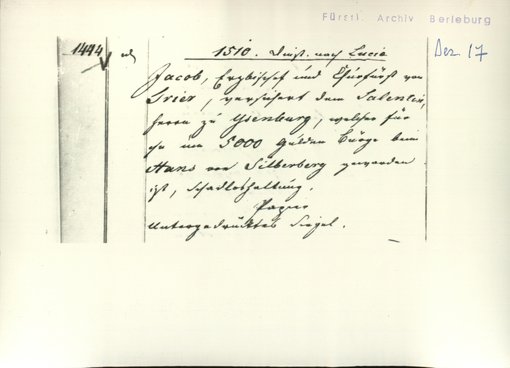 Fürstl. Archiv Berleburg
1444
1510. Dinst. nach Lucie
Dez. 17
Jacob, Erzbischof und Churfürst von
Trier, versichert dem Salentin,
Herrn zu Ysenburg, welcher für
ihn um 5000 Gulden Bürge beim
Hans von Silberberg geworden
ist, Schadloshaltung.
Papier
Untergedrücktes Siegel.